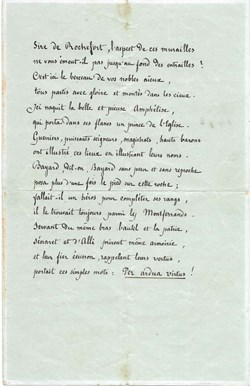 Sire de Rochefort, l'aspect de ces murailles
ne vous émeut-il pas jusqu'au fond des entrailles ?
C'est ici le berceau de vos nobles aïeux,
tous partis avec gloire et montés dans les cieux.
Ici naquit la belle et pieuse Amphélise,
qui porta dans ses flancs un prince de l'Eglise.
Guerriers, puissants seigneurs, magistrats, hauts barons
ont illustré ces lieux en illustrant leurs noms.
Bayard, dit-on, Bayard sans peur et sans reproche
posa plus d'une fois le pied sur cette roche ;
fallait-il un héros pour compléter ses rangs,
il le trouvait toujours parmi les Montferrands.
Servant du même bras l'autel et la patrie,
Sénaret et d'Alli prirent même armoirie,
et leur fier écusson, rappelant leurs vertus,
portait ces simples mots : Per ardua virtus !